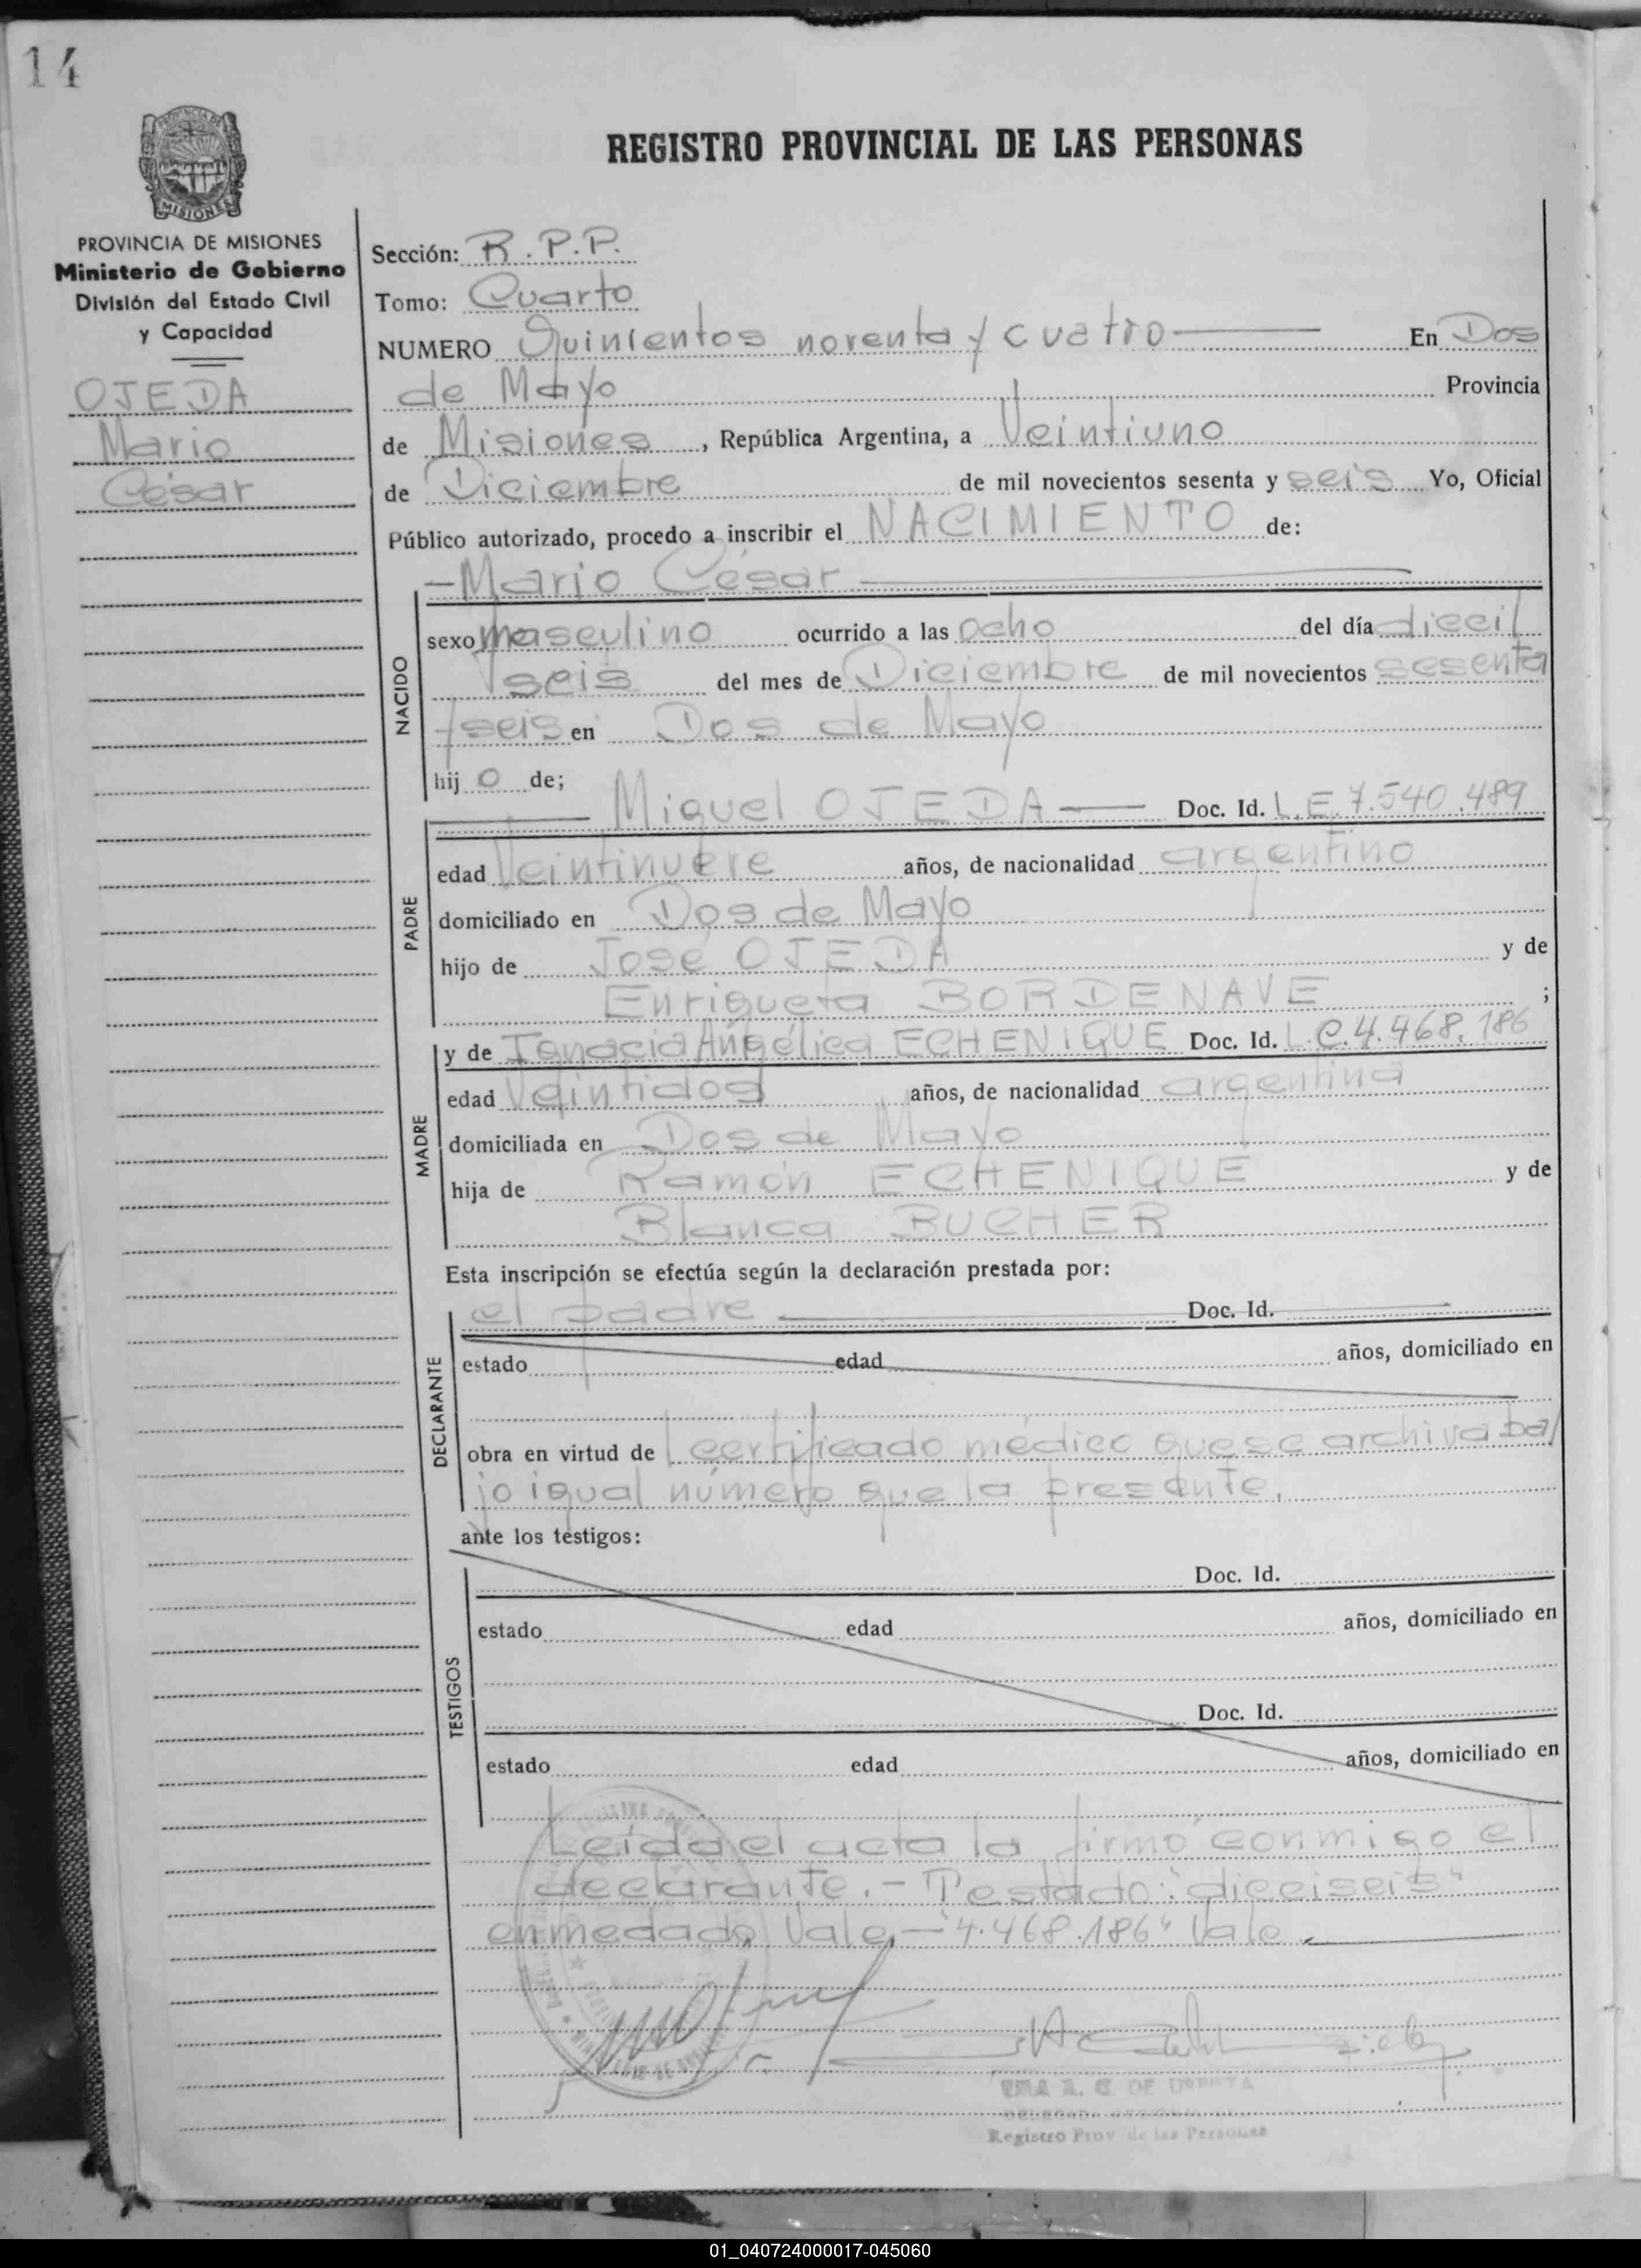 14
PROVINCIA DE
MISIONES
REGISTRO PROVINCIAL DE LAS PERSONAS
PROVINCIA DE MISIONES
Ministerio de Gobierno
División del Estado Civil
y Capacidad
OJEDA
Mario
César
Sección: R.P.P.
Tomo: Cuarto
NUMERO Quinientos noventa y cuatro En Dos
de Mayo Provincia
de Misiones, República Argentina, a Veintiuno
de Diciembre de mil novecientos sesenta y seis Yo, Oficial
Público autorizado, procedo a inscribir el NACIMIENTO de:
- Mario César
NACIDO
sexo masculino ocurrido a las ocho del día dieci/
seis del mes de Diciembre de mil novecientos sesenta
y seis en Dos de Mayo
hijo de;
PADRE
Miguel OJEDA Doc. Id. L.E. 7.540.489
edad Veintinueve años, de nacionalidad argentino
domiciliado en Dos de Mayo
hijo de José OJEDA y de
Enriqueta BORDENAVE ;
MADRE
y de Ignacia Angélica ECHENIQUE Doc. Id. L.C. 4.468.186
edad Veintidos años, de nacionalidad argentina
domiciliada en Dos de Mayo
hija de Ramón ECHENIQUE y de
Blanca BUCHER
Esta inscripción se efectúa según la declaración prestada por:
DECLARANTE
el padre Doc. Id.
estado edad años, domiciliado en
obra en virtud de certificado médico que se archiva ba/
jo igual número que la presente.
ante los testigos:
TESTIGOS
Doc. Id.
estado edad años, domiciliado en
Doc. Id.
estado edad años, domiciliado en
Leída el acta la firmó conmigo el
declarante.- Testado: "dieciseis"
enmedado, Vale,- "4.468.186" Vale.
Registro Prov de las Personas
01_040724000017-045060